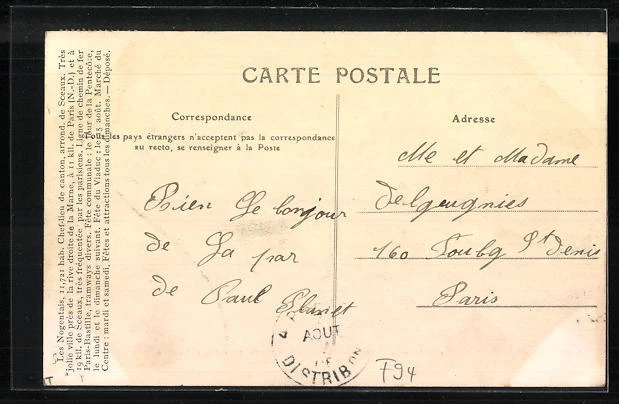 CARTE POSTALE
Correspondance
Tous les pays étrangers n'acceptent pas la correspondance
au recto, se renseigner à la Poste
Adresse
Les Nogentais, 11,721 hab. Chef-lieu de canton, arrond. de Sceaux. Très
jolie ville près de la rive droite de la Marne, à 11 kil. de Paris (N.-D.) et à
19 kil. de Sceaux, très fréquentée par les parisiens. Ligne de chemin de fer
Paris-Bastille, tramways divers. Fête communale : le jour de la Pentecôte,
le lundi et le dimanche suivant. Fête du Viaduc : le 15 août. Marché du
Centre : mardi et samedi, Fêtes et attractions tous les dimanches. — Déposé.
Bien Le bonjour
de La par
de Paul
Me et Madame
Delgeugnies
160 Foubg St Denis
Paris
AOUT
DISTRIBON
F94